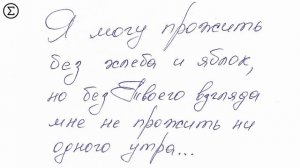 Σ
Я могу прожить
без хлеба и яблок,
но без Твоего взгляда
мне не прожить ни
одного утра...